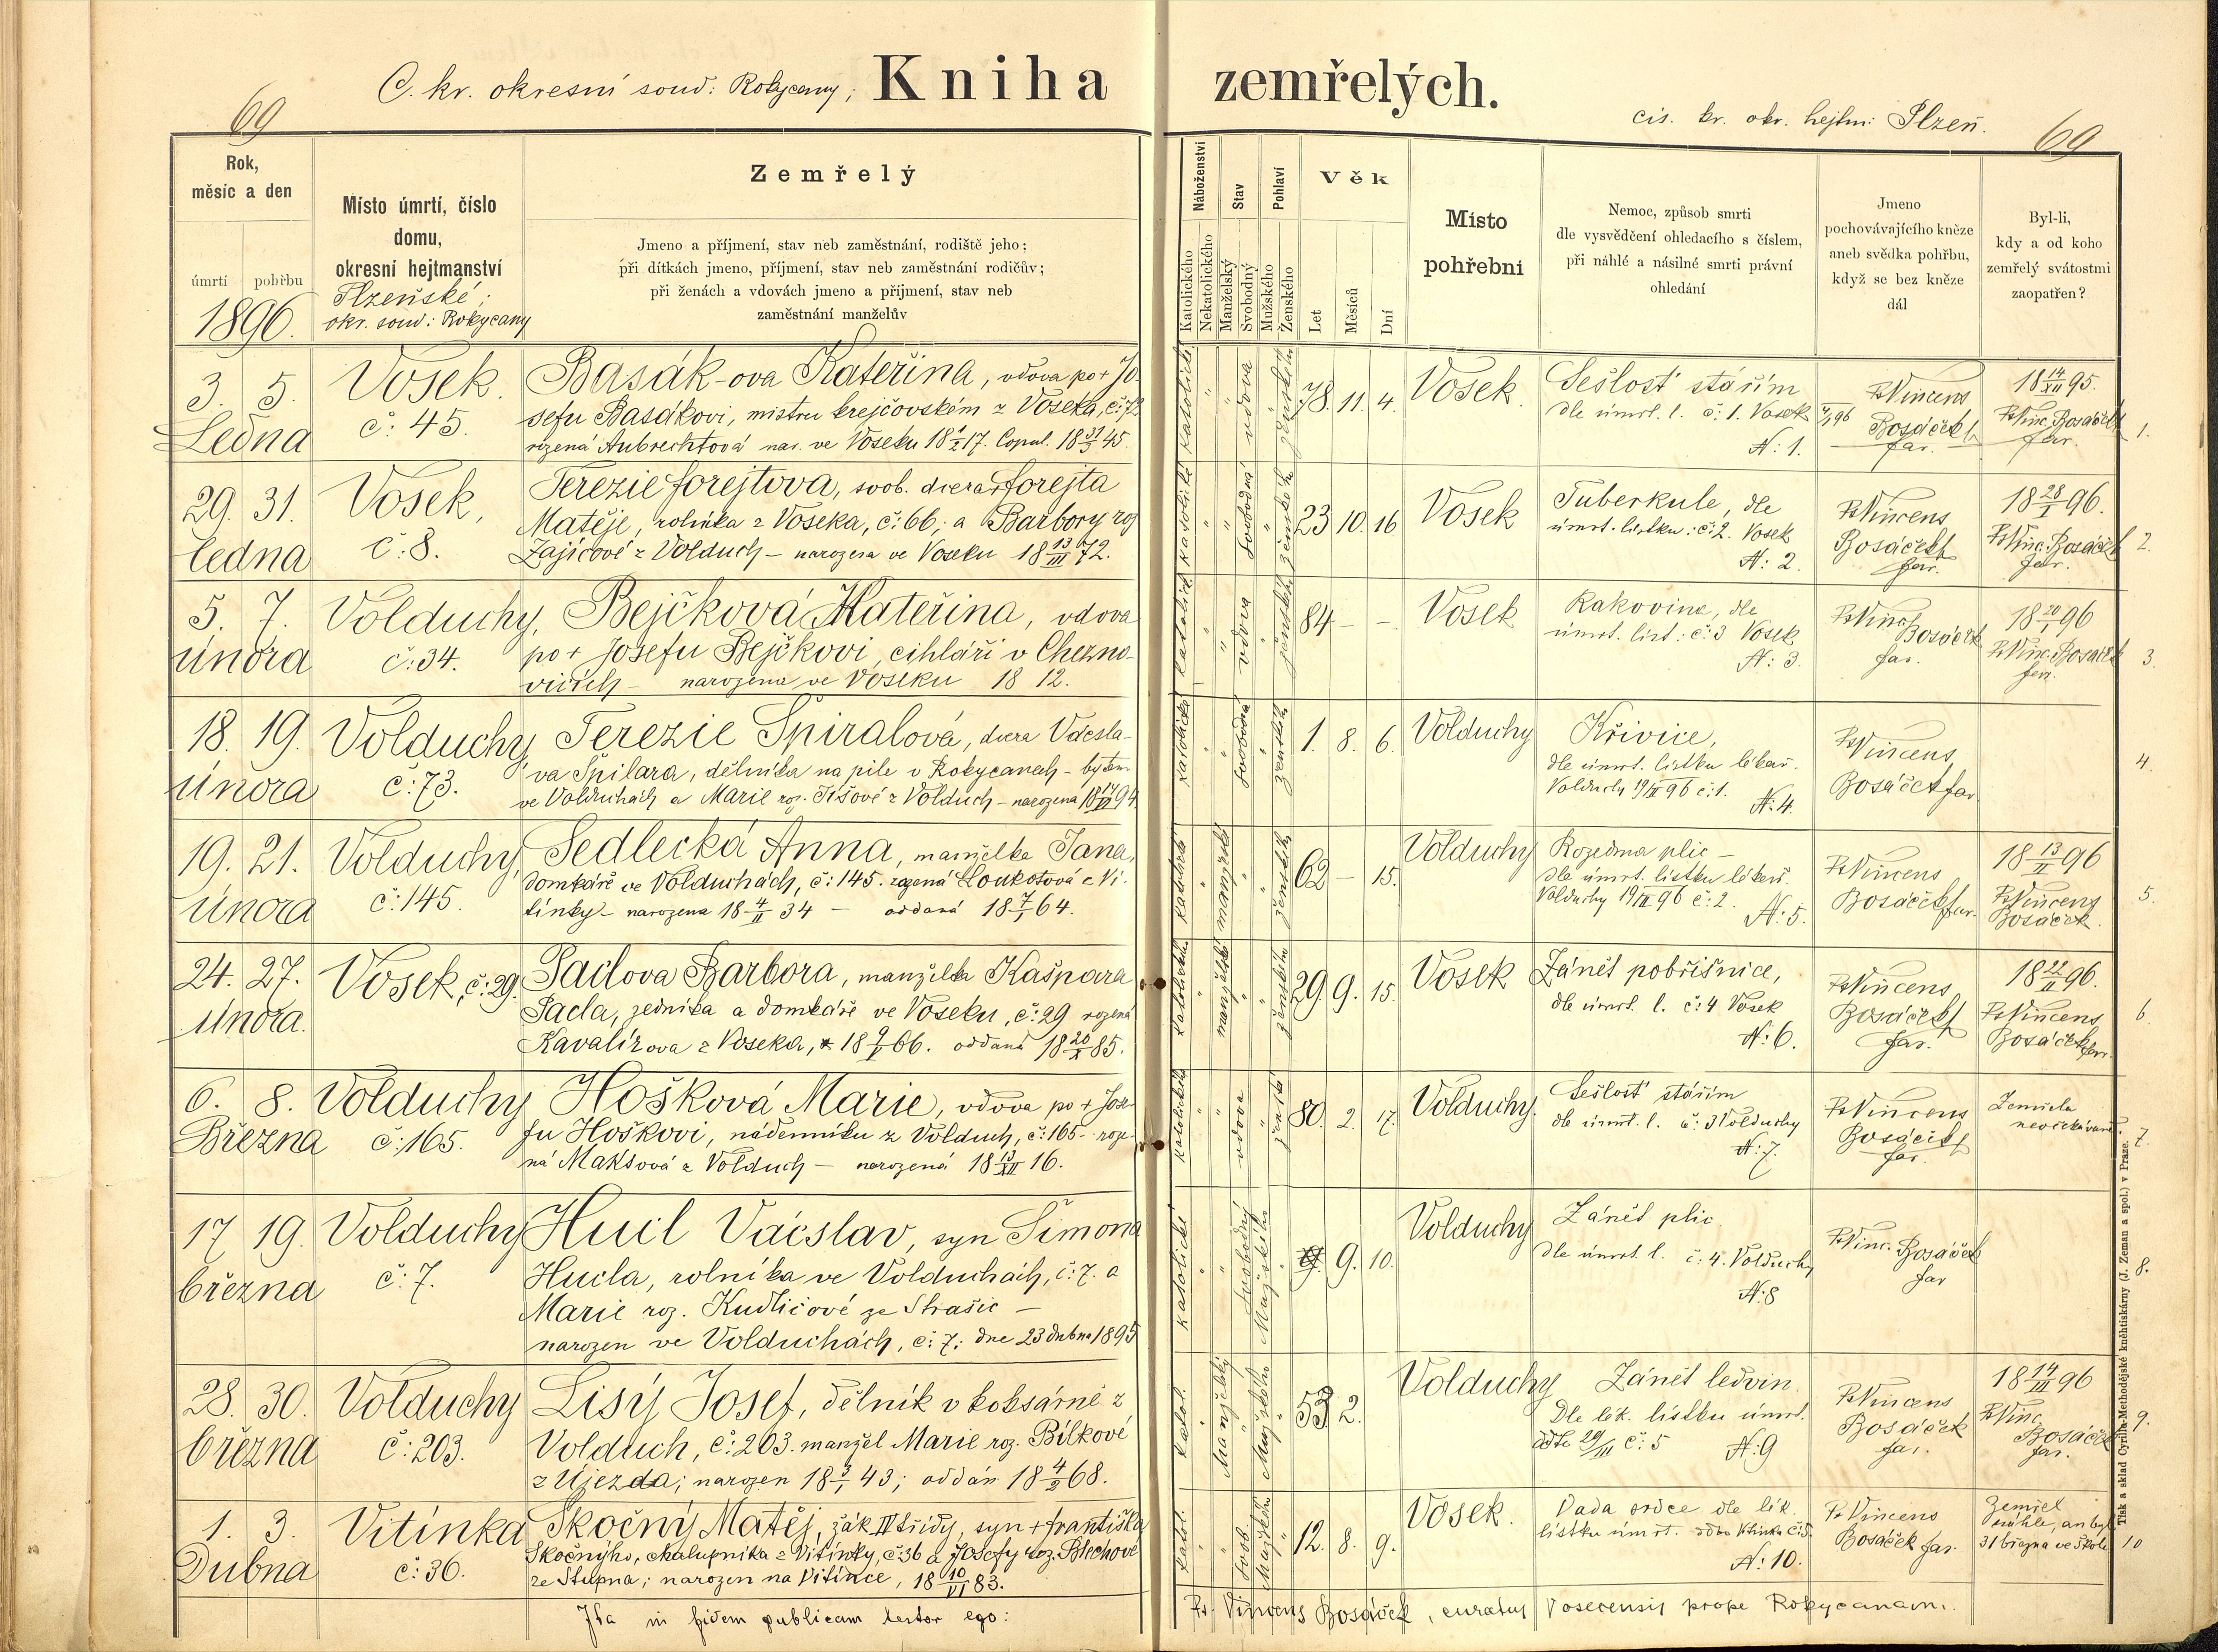 C. kr. okresní soud: Rokycany; Kniha zemřelých.
cis. kr. okr. hejtm: Plzeň.
69
69
Rok,
měsíc a den
úmrtí pohřbu
1896.
Místo úmrtí, číslo
domu,
okresní hejtmanství
Plzeňské;
okr. soud: Rokycany
Zemřelý
Jmeno a příjmení, stav neb zaměstnání, rodiště jeho;
při dítkách jmeno, příjmení, stav neb zaměstnání rodičův;
při ženách a vdovách jmeno a příjmení, stav neb
zaměstnání manželův
Náboženství
Katolického
Nekatolického
Stav
Manželský
Svobodný
Pohlaví
Mužského
Ženského
Věk
Let
Měsíců
Dní
Místo
pohřební
Nemoc, způsob smrti
dle vysvědčení ohledacího s číslem,
při náhlé a násilné smrti právní
ohledání
Jmeno
pochovávajícího kněze
aneb svědka pohřbu,
když se bez kněze
dál
Byl-li,
kdy a od koho
zemřelý svátostmi
zaopatřen?
3. 5.
Ledna
Vosek.
č: 45.
Basák-ova Kateřina, vdova po + Jo-
sefu Basákovi, mistru krejčovském z Voseka, č: 72
rozená Aubrechtová nar. ve Voseku 18 1/2 17. Copul. 18 31/5 45.
katolické
vdova
ženského
78. 11. 4.
Vosek.
Sešlosť stářím
dle úmrt. l. č: 1. Vosek
N: 1.
P. Vincens
Bosáček
far.
18 14/XII 95.
P. Vinc. Bosáček
far.
1.
29. 31.
ledna
Vosek,
č: 8.
Terezie Forejtova, svob. dcera + Forejta
Matěje, rolníka z Voseka, č: 66; a Barbory roz
Zajícové z Volduch – narozena ve Voseku 18 13/III 72.
katolické
svobodná
ženského
23 10. 16
Vosek
Tuberkule, dle
úmrt. lístku: č: 2. Vosek
N: 2.
P. Vincens
Bosáček
far.
18 28/I 96.
P. Vinc. Bosáček
far.
2.
5. 7.
února
Volduchy,
č: 34.
Bejčková Kateřina, vdova
po + Josefu Bejčkovi, cihláři v Chezno-
vicích – narozena ve Voseku 18 12.
vdova
84 – –
Vosek
Rakovina, dle
úmrt. líst: č: 3 Vosek
N: 3.
P. Vinc.
Bosáček
far.
18 20/I 96
P. Vinc. Bosáček
far.
3.
18. 19.
února
Volduchy,
č: 73.
Terezie Špiralová, dcera Vácsla-
va Špilara, dělníka na pile v Rokycanech – bytem
ve Volduchách a Marie roz. Tišové z Volduch – narozena
svobodná
1. 8. 6.
Volduchy
Křivice,
dle úmrt. lístku lékař.
Volduchy 19/II 96 č: 1.
N: 4.
P. Vincens
Bosáček far
4.
19. 21.
února
Volduchy,
č: 145.
Sedlecká Anna, manželka Jana,
domkáře ve Volduchách, č: 145. rozená Loukotová z Vi-
tinky – narozena 18 4/II 34 – oddaná 18 7/1 64.
62 – 15.
Volduchy
Rozedma plic –
dle úmrt. lístku lékař.
Volduchy 19/II 96 č: 2.
N: 5.
P. Vincens
Bosáček far.
18 13/II 96
P. Vincens
Bosáček.
5.
24. 27.
února.
Vosek, č: 29.
Paclova Barbora, manželka Kašpara
Pacla, zedníka a domkáře ve Voseku, č: 29 rozená
Kavalírova z Voseka, * 18 9/5 66. oddaná 18 20/X 85.
29. 9. 15.
Vosek
Zánět pobřišnice,
dle úmrt. l. č: 4 Vosek
N: 6.
P. Vincens
Bosáček
far.
18 22/II 96.
P. Vincens
Bosáček far.
6
6. 8.
Března
Volduchy
č: 165.
Hošková Marie, vdova po + Jose-
fu Hoškovi, nádenníku z Volduch, č: 165 – roze-
ná Maksová z Volduch – narozená 18 13/XII 16.
katolické
vdova
80. 2. 17.
Volduchy.
Sešlosť stářím
dle úmrt. l. č: 3 Volduchy
N: 7.
P. Vincens
Bosáček
far.
Zemřela
neočekávaně.
7.
17 19.
března
Volduchy
č: 7.
Hucl Václav, syn Šimona
Hucla, rolníka ve Volduchách, č: 7. a
Marie roz. Kudličové ze Strašic –
narozen ve Volduchách, č: 7; dne 23 dubna 1895
katolické
svobodný
Mužského
9. 10.
Volduchy
Zánět plic.
dle úmrt. l. č: 4. Volduchy
N: 8
P. Vinc. Bosáček
far
8.
28. 30.
března
Volduchy
č: 203.
Lisý Josef, dělník v koksárně z
Volduch, č: 203. manžel Marie roz. Bílkové
z Újezda; narozen 18 3/1 43; oddán 18 4/2 68.
Katol.
Manželský
Mužského
53 2.
Volduchy
Zánět ledvin.
Dle lék. lístku úmrt.
ddto 29/III č: 5 N: 9
P. Vincens
Bosáček
far.
18 14/III 96
P. Vinc.
Bosáček
far.
9.
1. 3.
Dubna
Vitinka
č: 36.
Skočný Matěj, žák IV třídy, syn + Františka
Skočnýho, chalupníka z Vitinky, č 36 a Josefy roz. Blechové
ze Stupna; narozen na Vitince, 18 10/VI 83.
Katol.
svob.
Mužského
12. 8. 9.
Vosek.
Vada srdce dle lék.
lístku úmrt.
N: 10.
P. Vincens
Bosáček far.
Zemřel
náhle, an byl
31 března ve škole
10
Ita in fidem publicam testor ego:
P. Vincens Bosáček, curatus Vosecensis prope Rokycanam.
Tisk a sklad Cyrillo-Methodějské knihtiskárny (J. Zeman a spol.) v Praze.